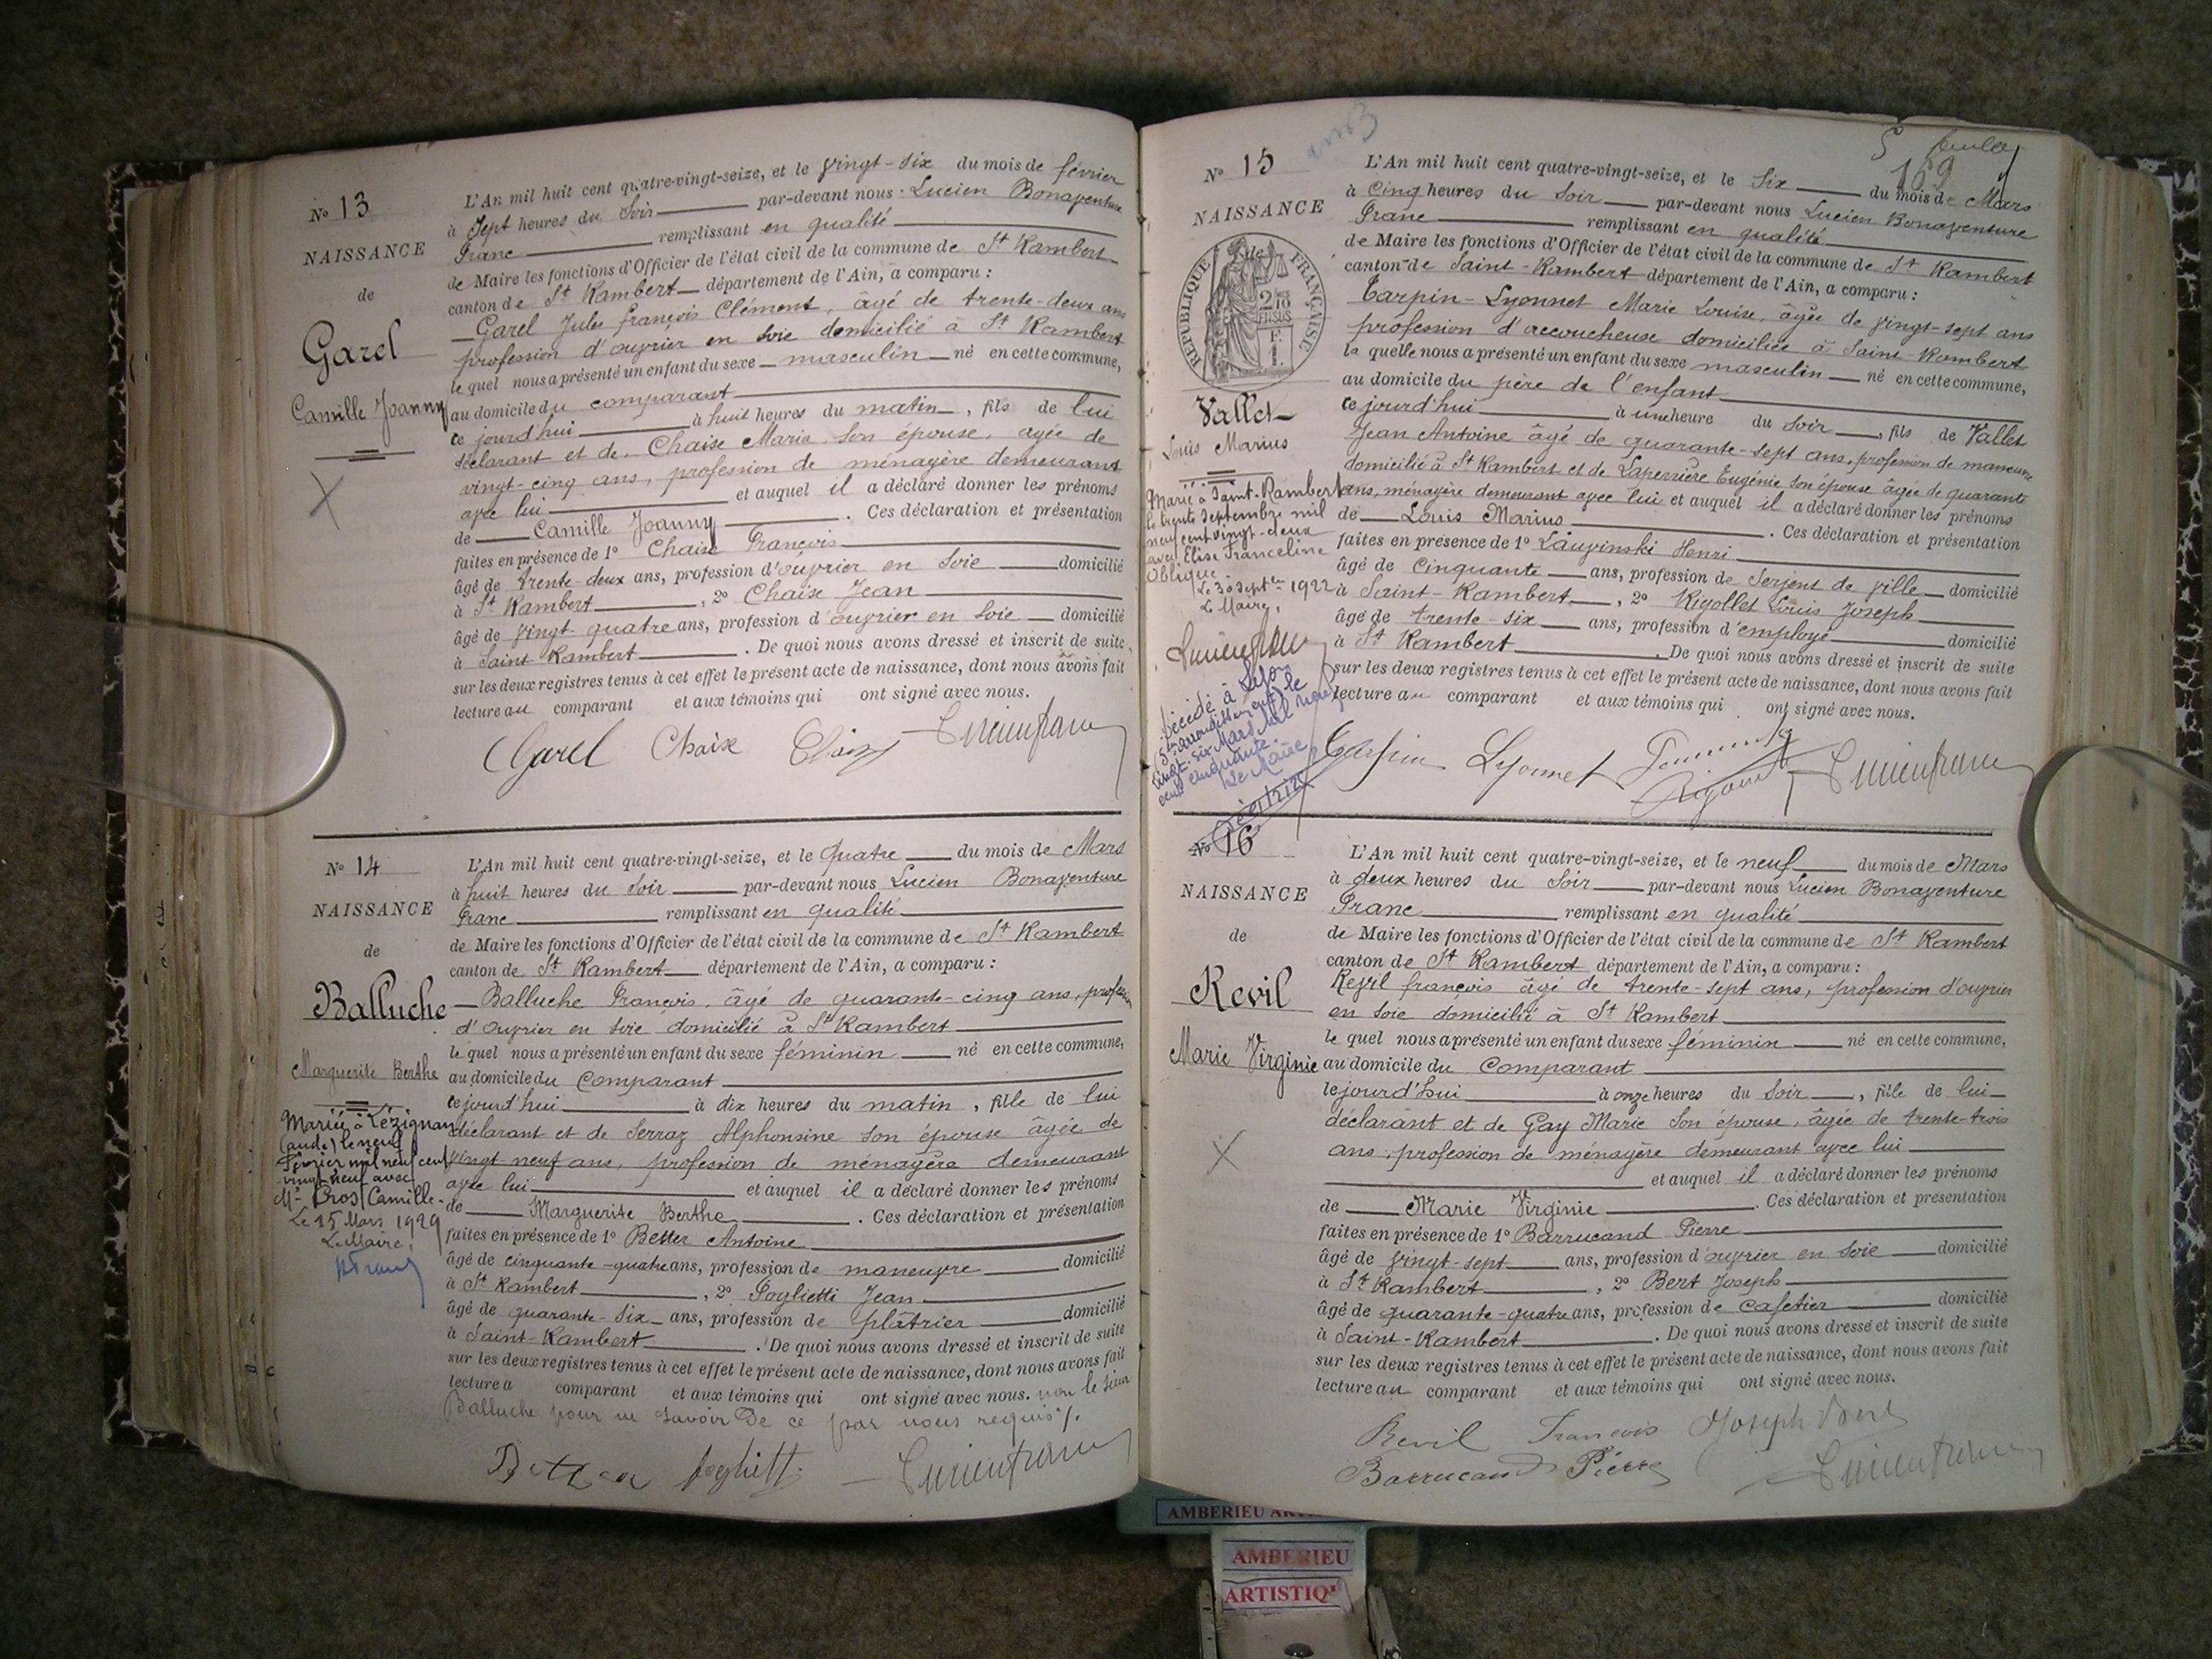 No 13
NAISSANCE
de
Garel
Camille Joanny
L'An mil huit cent quatre-vingt-seize, et le vingt-six du mois de février
à Sept heures du Soir par-devant nous Lucien Bonaventure
Franc remplissant en qualité
de Maire les fonctions d'Officier de l'état civil de la commune de St Rambert
canton de St Rambert département de l'Ain, a comparu :
Garel Jules françois Clément, âgé de trente-deux ans
profession d'ouvrier en soie domicilié à St Rambert
le quel nous a présenté un enfant du sexe masculin né en cette commune,
au domicile du comparant
ce jourd'hui à huit heures du matin, fils de lui
déclarant et de Chaise Marie son épouse, agée de
vingt-cinq ans, profession de ménagère demeurant
avec lui et auquel il a déclaré donner les prénoms
de Camille Joanny . Ces déclaration et présentation
faites en présence de 1° Chaise François
âgé de trente-deux ans, profession d'ouvrier en Soie domicilié
à St Rambert , 2° Chaise Jean
âgé de vingt-quatre ans, profession d'ouvrier en Soie domicilié
à Saint Rambert . De quoi nous avons dressé et inscrit de suite
sur les deux registres tenus à cet effet le présent acte de naissance, dont nous avons fait
lecture au comparant et aux témoins qui ont signé avec nous.
Garel Chaix
No 14
NAISSANCE
de
Balluche
Marguerite Berthe
Mariée à Lézignan
(aude) le neuf
Février mil neuf cent
vingt neuf avec
Mr Cros Camille.
Le 15 Mars 1929
Le Maire,
L'An mil huit cent quatre-vingt-seize, et le Quatre du mois de Mars
à huit heures du Soir par-devant nous Lucien Bonaventure
Franc remplissant en qualité
de Maire les fonctions d'Officier de l'état civil de la commune de St Rambert
canton de St Rambert département de l'Ain, a comparu :
Balluche François, âgé de quarante-cinq ans, profession
d'ouvrier en soie domicilié à St Rambert
le quel nous a présenté un enfant du sexe féminin né en cette commune,
au domicile du Comparant
ce jourd'hui à dix heures du matin, fille de lui
déclarant et de Serraz Alphonsine son épouse âgée de
vingt neuf ans, profession de ménagère demeurant
avec lui et auquel il a déclaré donner les prénoms
de Marguerite Berthe . Ces déclaration et présentation
faites en présence de 1° Better Antoine
âgé de cinquante-quatre ans, profession de maneuvre domicilié
à St Rambert , 2° Poglietti Jean
âgé de quarante-six ans, profession de plâtrier domicilié
à Saint-Rambert . De quoi nous avons dressé et inscrit de suite
sur les deux registres tenus à cet effet le présent acte de naissance, dont nous avons fait
lecture a comparant et aux témoins qui ont signé avec nous. non le sieur
Balluche pour ne savoir de ce par nous requis
169
No 15
NAISSANCE
de
RÉPUBLIQUE FRANÇAISE
2/10 EN SUS
F. 1.
Vallet
Louis Marius
Marié à Saint-Rambert
le trente septembre mil
neuf cent vingt-deux
avec Elise Franceline
Oblique
Le 30 Septbre 1922
Le Maire,
Décédé à Lyon
5e arrondissement le
vingt-six Mars mil neuf
cent cinquante.
Le Maire
L'An mil huit cent quatre-vingt-seize, et le Six du mois de Mars
à cinq heures du Soir par-devant nous Lucien Bonaventure
Franc remplissant en qualité
de Maire les fonctions d'Officier de l'état civil de la commune de St Rambert
canton de Saint-Rambert département de l'Ain, a comparu :
Tarpin-Lyonnet Marie Louise, âgée de vingt-sept ans
profession d'accoucheuse domiciliée à Saint-Rambert
la quelle nous a présenté un enfant du sexe masculin né en cette commune,
au domicile du père de l'enfant
ce jourd'hui à une heure du Soir, fils de Vallet
Jean Antoine âgé de quarante-sept ans, profession de maneuvre
domicilié à St Rambert et de Laperrière Eugénie son épouse âgée de quarante
ans, ménagère demeurant avec lui et auquel il a déclaré donner les prénoms
de Louis Marius . Ces déclaration et présentation
faites en présence de 1° Laupinski Henri
âgé de Cinquante ans, profession de Serjent de ville domicilié
à Saint-Rambert , 2° Rigollet Louis Joseph
âgé de trente-six ans, profession d'employé domicilié
à St Rambert . De quoi nous avons dressé et inscrit de suite
sur les deux registres tenus à cet effet le présent acte de naissance, dont nous avons fait
lecture au comparant et aux témoins qui ont signé avec nous.
Tarpin Lyonnet
No 16
NAISSANCE
de
Revil
Marie Virginie
L'An mil huit cent quatre-vingt-seize, et le neuf du mois de Mars
à deux heures du Soir par-devant nous Lucien Bonaventure
Franc remplissant en qualité
de Maire les fonctions d'Officier de l'état civil de la commune de St Rambert
canton de St Rambert département de l'Ain, a comparu :
Revil françois âgé de trente-sept ans, profession d'ouvrier
en soie domicilié à St Rambert
le quel nous a présenté un enfant du sexe féminin né en cette commune,
au domicile du Comparant
le jourd'hui à onze heures du Soir, fille de lui
déclarant et de Gay Marie Son épouse, âgée de trente-trois
ans, profession de ménagère demeurant avec lui
et auquel il a déclaré donner les prénoms
de Marie Virginie . Ces déclaration et présentation
faites en présence de 1° Barrucand Pierre
âgé de vingt-sept ans, profession d'ouvrier en Soie domicilié
à St Rambert , 2° Bert Joseph
âgé de quarante-quatre ans, profession de cafetier domicilié
à Saint-Rambert . De quoi nous avons dressé et inscrit de suite
sur les deux registres tenus à cet effet le présent acte de naissance, dont nous avons fait
lecture au comparant et aux témoins qui ont signé avec nous.
Revil François Joseph Bert
Barrucand Pierre
AMBERIEU
AMBERIEU
ARTISTIQ